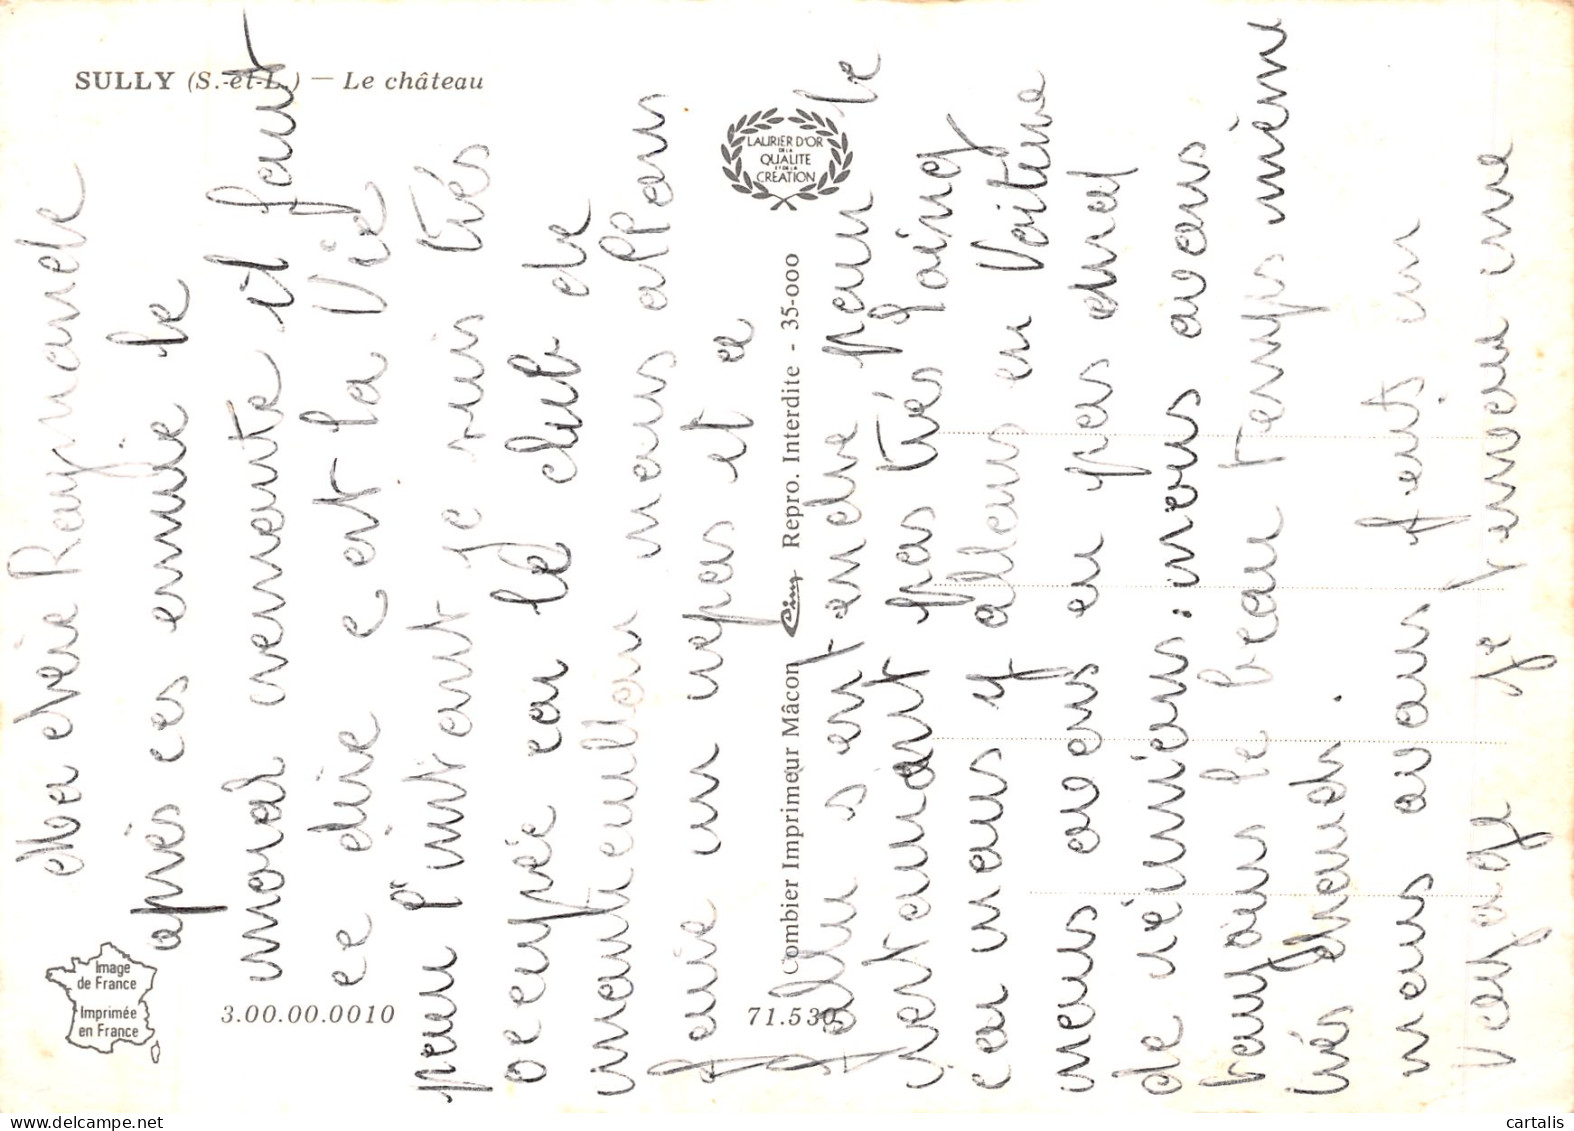 SULLY (S.-et-L.) — Le château
LAURIER D'OR
DE LA
QUALITE
ET DE LA
CREATION
Image
de France
Imprimée
en France
3.00.00.0010
71.530
Combier Imprimeur Mâcon Cim Repro. Interdite - 35-000
Ma chère Raymonde
après ces ennuie le
moral remonte il faut
ce dire c est la Vie
pour l'instant je suis très
occupée car le club de
nous allons
faire un repas et a
s entendre pour le
restaurant pas très loin
car nous y allons en Voiture
nous avons eu pas mal
de réunions: nous avons
toujours le beau temps même
très chaud.
nous avons fait un
Voyage je t envoie une